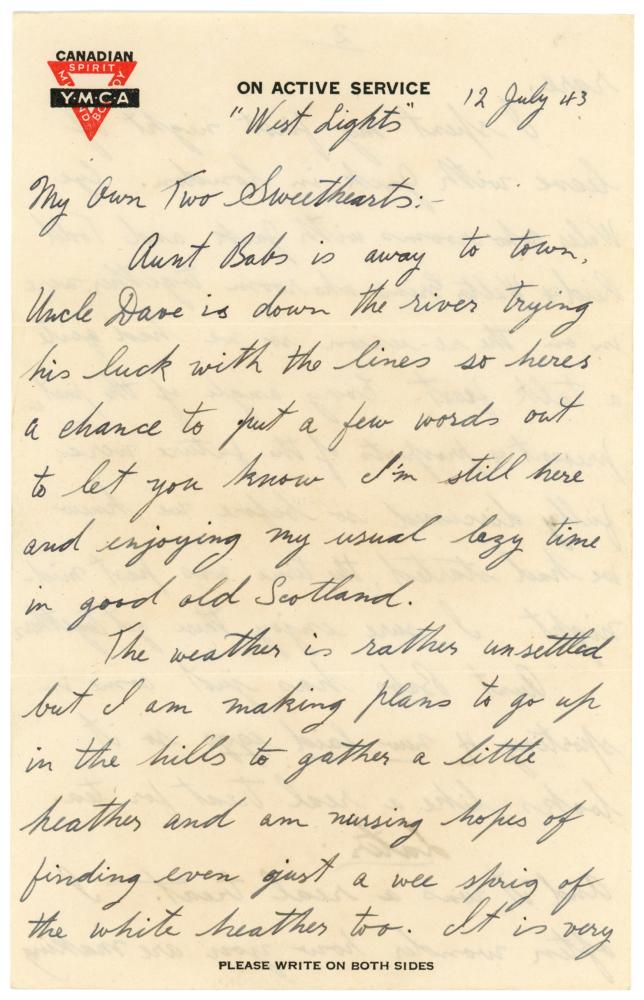 CANADIAN
SPIRIT
Y·M·C·A
MIND
BODY
ON ACTIVE SERVICE
12 July 43
"West Lights"
My Own Two Sweethearts:-
Aunt Babs is away to town,
Uncle Dave is down the river trying
his luck with the lines so heres
a chance to put a few words out
to let you know I'm still here
and enjoying my usual lazy time
in good old Scotland.
The weather is rather unsettled
but I am making plans to go up
in the hills to gather a little
heather and am nursing hopes of
finding even just a wee sprig of
the white heather too. It is very
PLEASE WRITE ON BOTH SIDES